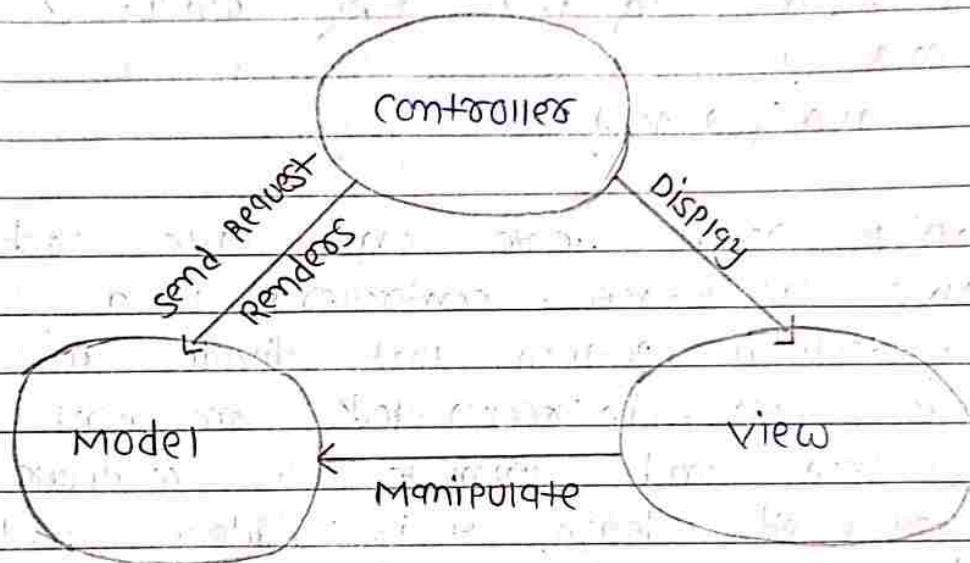 Controller
Send Request
Renders
Display
Model
View
Manipulate